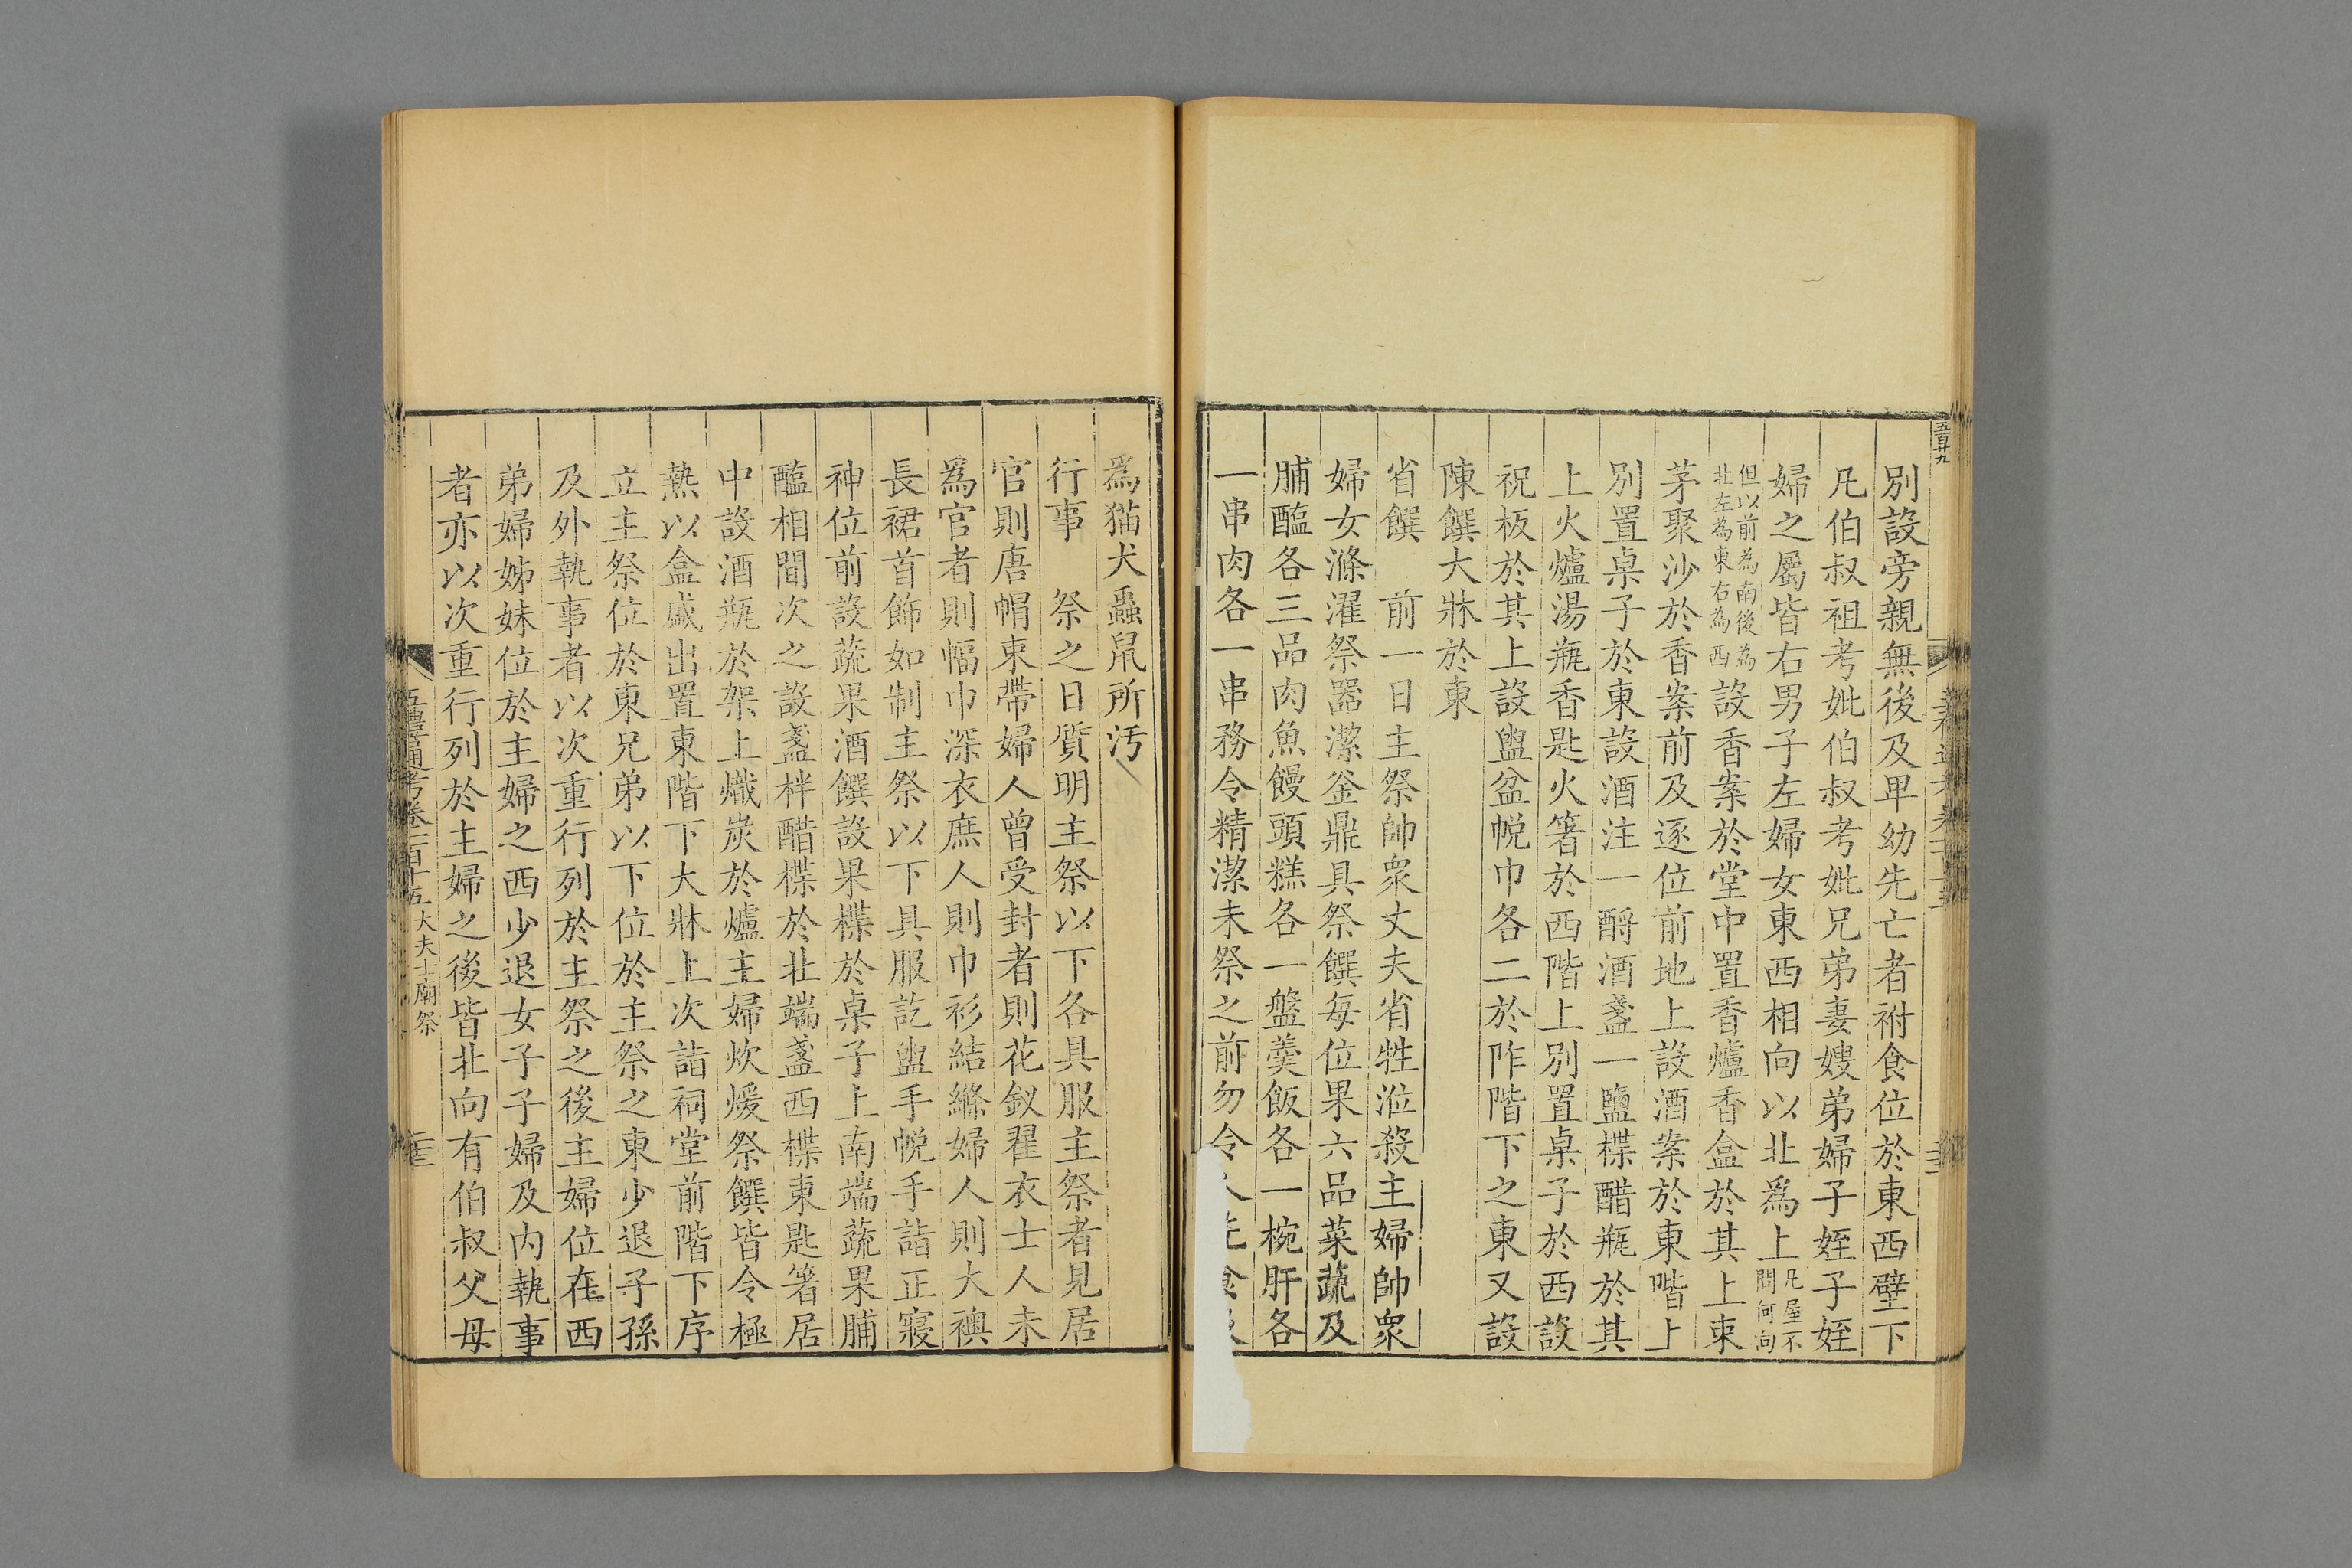 五百廿九
別設旁親無後及卑幼先亡者祔食位於東西壁下
凡伯叔祖考妣伯叔考妣兄弟妻嫂弟婦子姪子姪
婦之屬皆右男子左婦女東西相向以北爲上
凡屋不
問何向
但以前為南後為
北左為東右為西
設香案於堂中置香爐香盒於其上束
茅聚沙於香案前及逐位前地上設酒案於東階上
別置桌子於東設酒注一酹酒盞一鹽楪醋瓶於其
上火爐湯瓶香匙火箸於西階上別置桌子於西設
祝板於其上設盥盆帨巾各二於阼階下之東又設
陳饌大牀於東
省饌 前一日主祭帥眾丈夫省牲涖殺主婦帥眾
婦女滌濯祭器潔釜鼎具祭饌每位果六品菜蔬及
脯醢各三品肉魚饅頭糕各一盤羹飯各一椀肝各
一串肉各一串務令精潔未祭之前勿令
爲猫犬蟲鼠所汚
行事 祭之日質明主祭以下各具服主祭者見居
官則唐帽束帶婦人曾受封者則花釵翟衣士人未
爲官者則幅巾深衣庶人則巾衫結絛婦人則大襖
長裙首飾如制主祭以下具服訖盥手帨手詣正寢
神位前設蔬果酒饌設果楪於桌子上南端蔬果脯
醢相間次之設盞柈醋楪於北端盞西楪東匙箸居
中設酒瓶於架上熾炭於爐主婦炊煖祭饌皆令極
熱以盒盛出置東階下大牀上次詣祠堂前階下序
立主祭位於東兄弟以下位於主祭之東少退子孫
及外執事者以次重行列於主祭之後主婦位在西
弟婦姊妹位於主婦之西少退女子子婦及內執事
者亦以次重行列於主婦之後皆北向有伯叔父母
五禮通考卷一百十五 大夫士廟祭